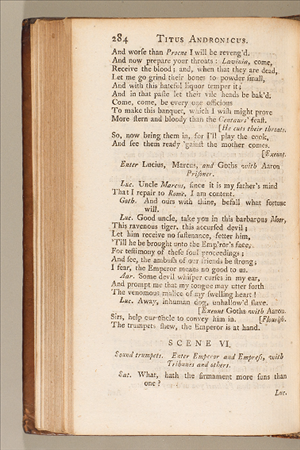 284 TITUS ANDRONICUS.
And worse than Procne I will be reveng'd.
And now prepare your throats: Lavinia, come,
Receive the blood; and, when that they are dead,
Let me go grind their bones to powder small,
And with this hateful liquor temper it;
And in that paste let their vile heads be bak'd.
Come, come, be every one officious
To make this banquet, which I wish might prove
More stern and bloody than the Centaurs' feast.
[He cuts their throats.
So, now bring them in, for I'll play the cook,
And see them ready 'gainst the mother comes.
[Exeunt.
Enter Lucius, Marcus, and Goths with Aaron
Prisoner.
Luc. Uncle Marcus, since it is my father's mind
That I repair to Rome, I am content.
Goth. And ours with thine, befall what fortune
will.
Luc. Good uncle, take you in this barbarous Moor,
This ravenous tiger, this accursed devil;
Let him receive no sustenance, fetter him,
'Till he be brought unto the Emp'ror's face,
For testimony of these foul proceedings;
And see, the ambush of our friends be strong;
I fear, the Emperor means no good to us.
Aar. Some devil whisper curses in my ear,
And prompt me that my tongue may utter forth
The venomous malice of my swelling heart!
Luc. Away, inhuman dog, unhallow'd slave.
[Exeunt Goths with Aaron.
Sirs, help our uncle to convey him in. [Flourish.
The trumpets shew, the Emperor is at hand.
SCENE VI.
Sound trumpets. Enter Emperor and Empress, with
Tribunes and others.
Sat. What, hath the firmament more suns than
one?
Luc.